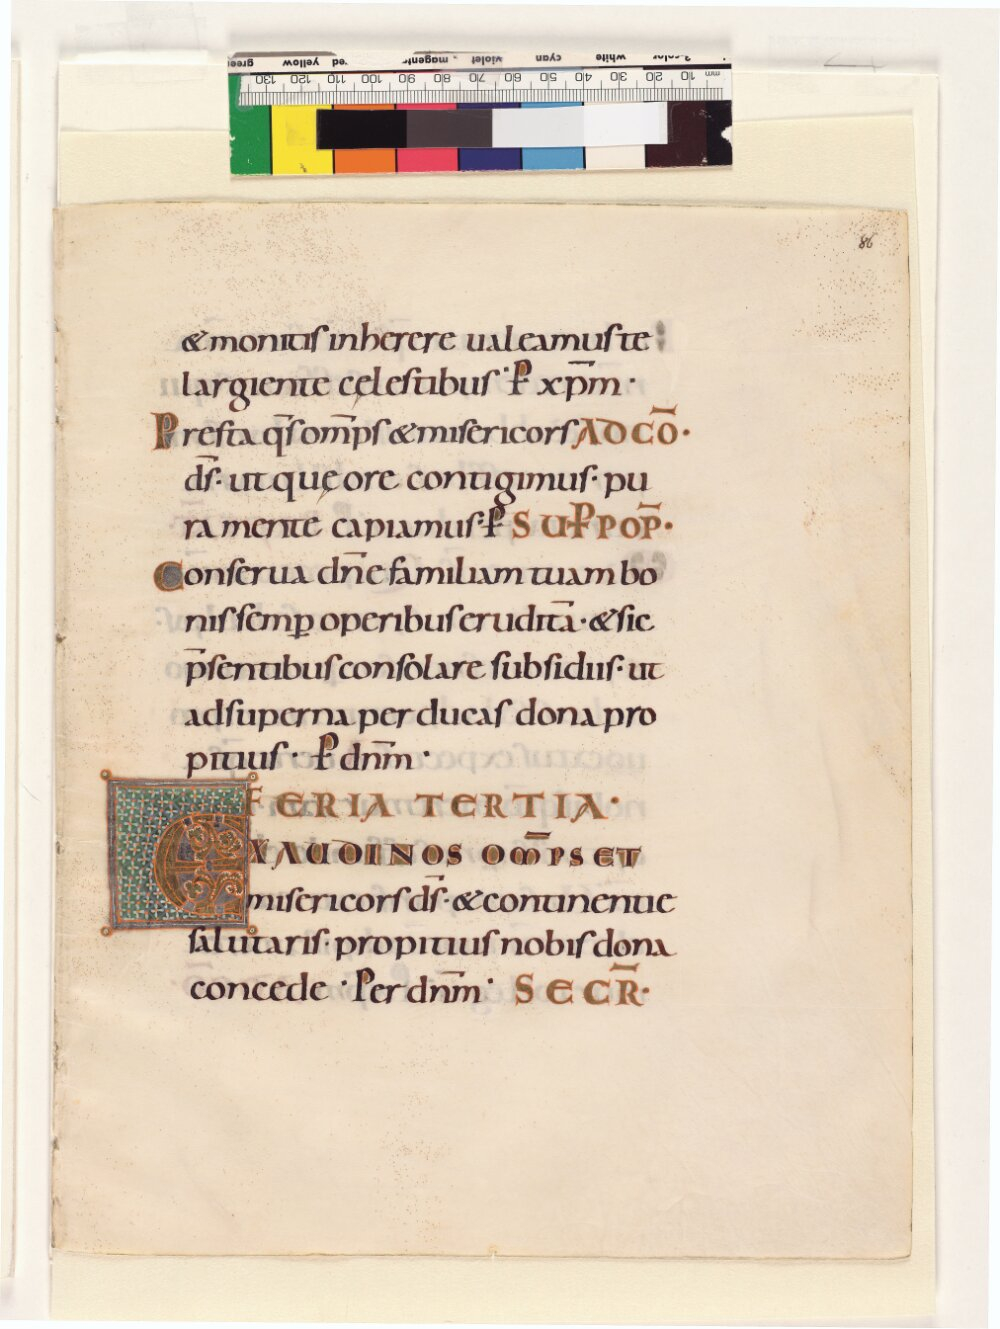 mm 10 20 30 40 50 60 70 80 90 100 110 120 130
3-color white cyan violet magenta red yellow green
86
&monitis inherere ualeamus te
largiente cęlestibus· P̄ xp̄m·
Presta q̄s om̄ps &misericors AD CŌ·
d̄s· ut quę ore contigimus· pu
ra mente capiamus· P̄ SUP POP̄·
Conserua dn̄e familiam tuam bo
nis semꝑ operibus eruditā· &sic
p̄sentibus consolare subsidiis· ut
ad superna perducas dona pro
pitius· P̄ dn̄m·
FERIA TERTIA·
EXAUDI NOS OM̄PS ET
misericors d̄s· &continentie
salutaris· propitius nobis dona
concede· Per dn̄m· SECR̄·